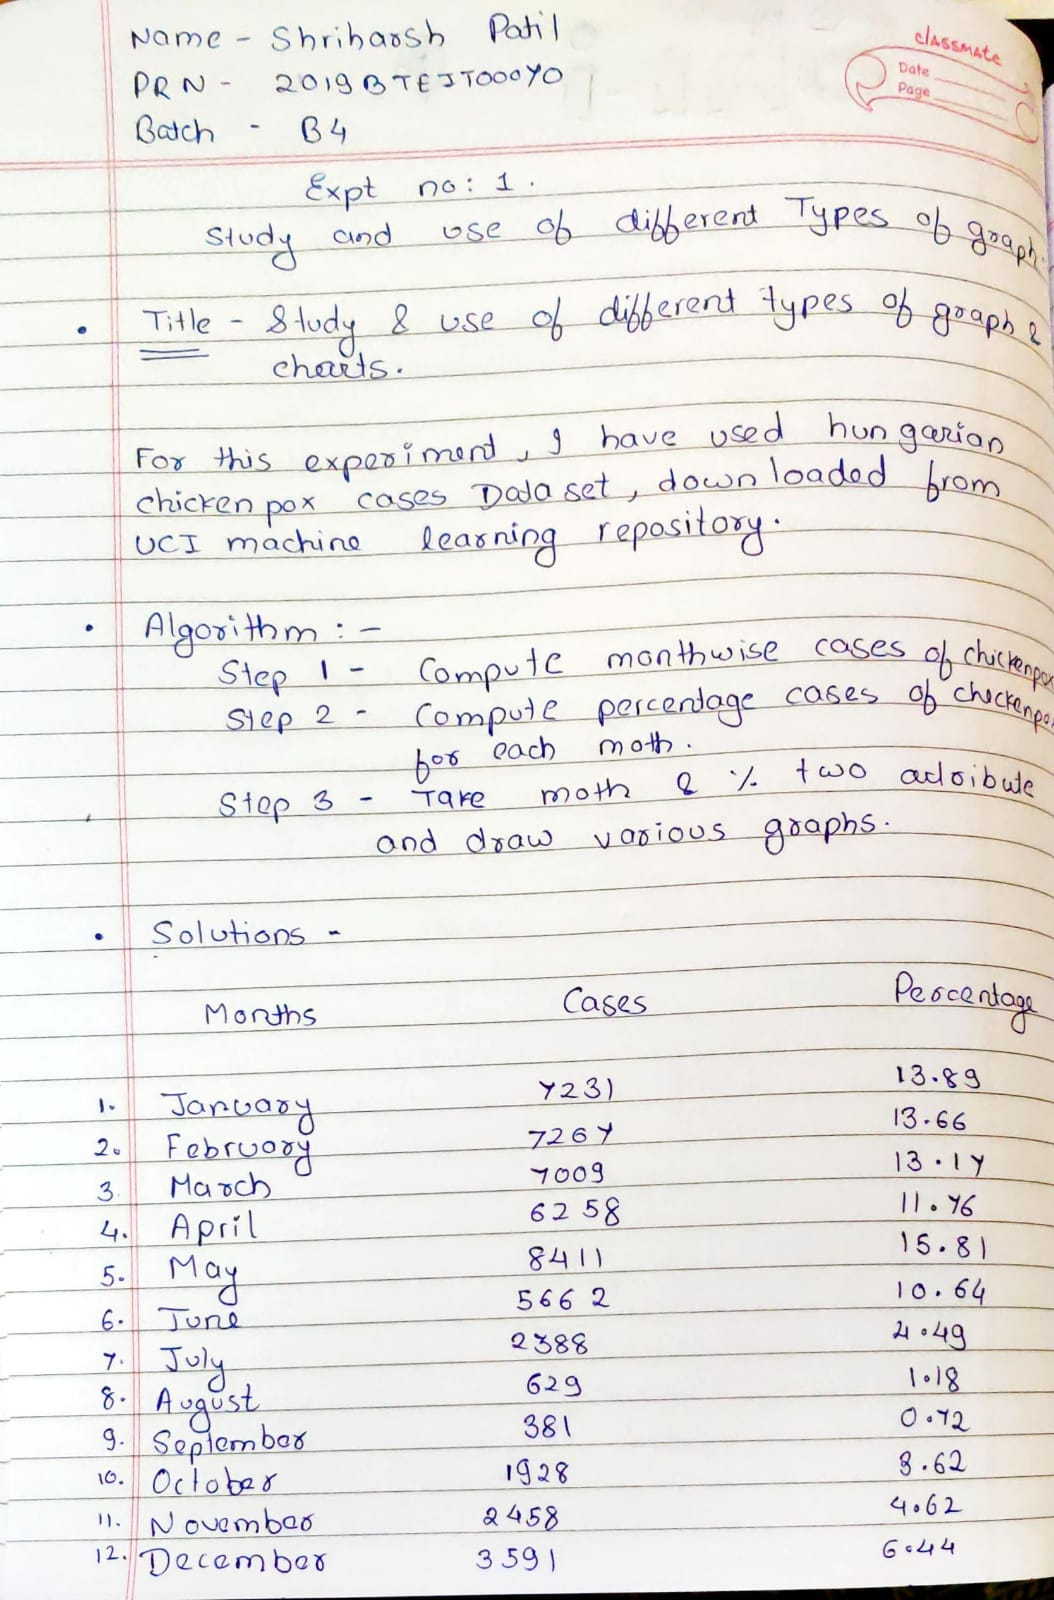 Name - Shriharsh Patil
classmate
Date
PRN - 2019BTEIT00070
Page
Batch - B4
Expt no: 1.
Study and use of different Types of graph.
• Title - Study & use of different types of graph &
charts.
For this experiment, I have used hungarian
chicken pox cases Data set, down loaded from
UCI machine learning repository.
• Algorithm : -
Step 1 - Compute monthwise cases of chickenpox
Step 2 - Compute percentage cases of chickenpox
for each moth.
Step 3 - Take moth & % two adribute
and draw various graphs.
• Solutions -
Months Cases Percentage
1. January 7231 13.89
2. February 7267 13.66
3. March 7009 13.17
4. April 6258 11.76
5. May 8411 15.81
6. June 5662 10.64
7. July 2388 4.49
8. August 629 1.18
9. September 381 0.72
10. October 1928 3.62
11. November 2458 4.62
12. December 3591 6.44